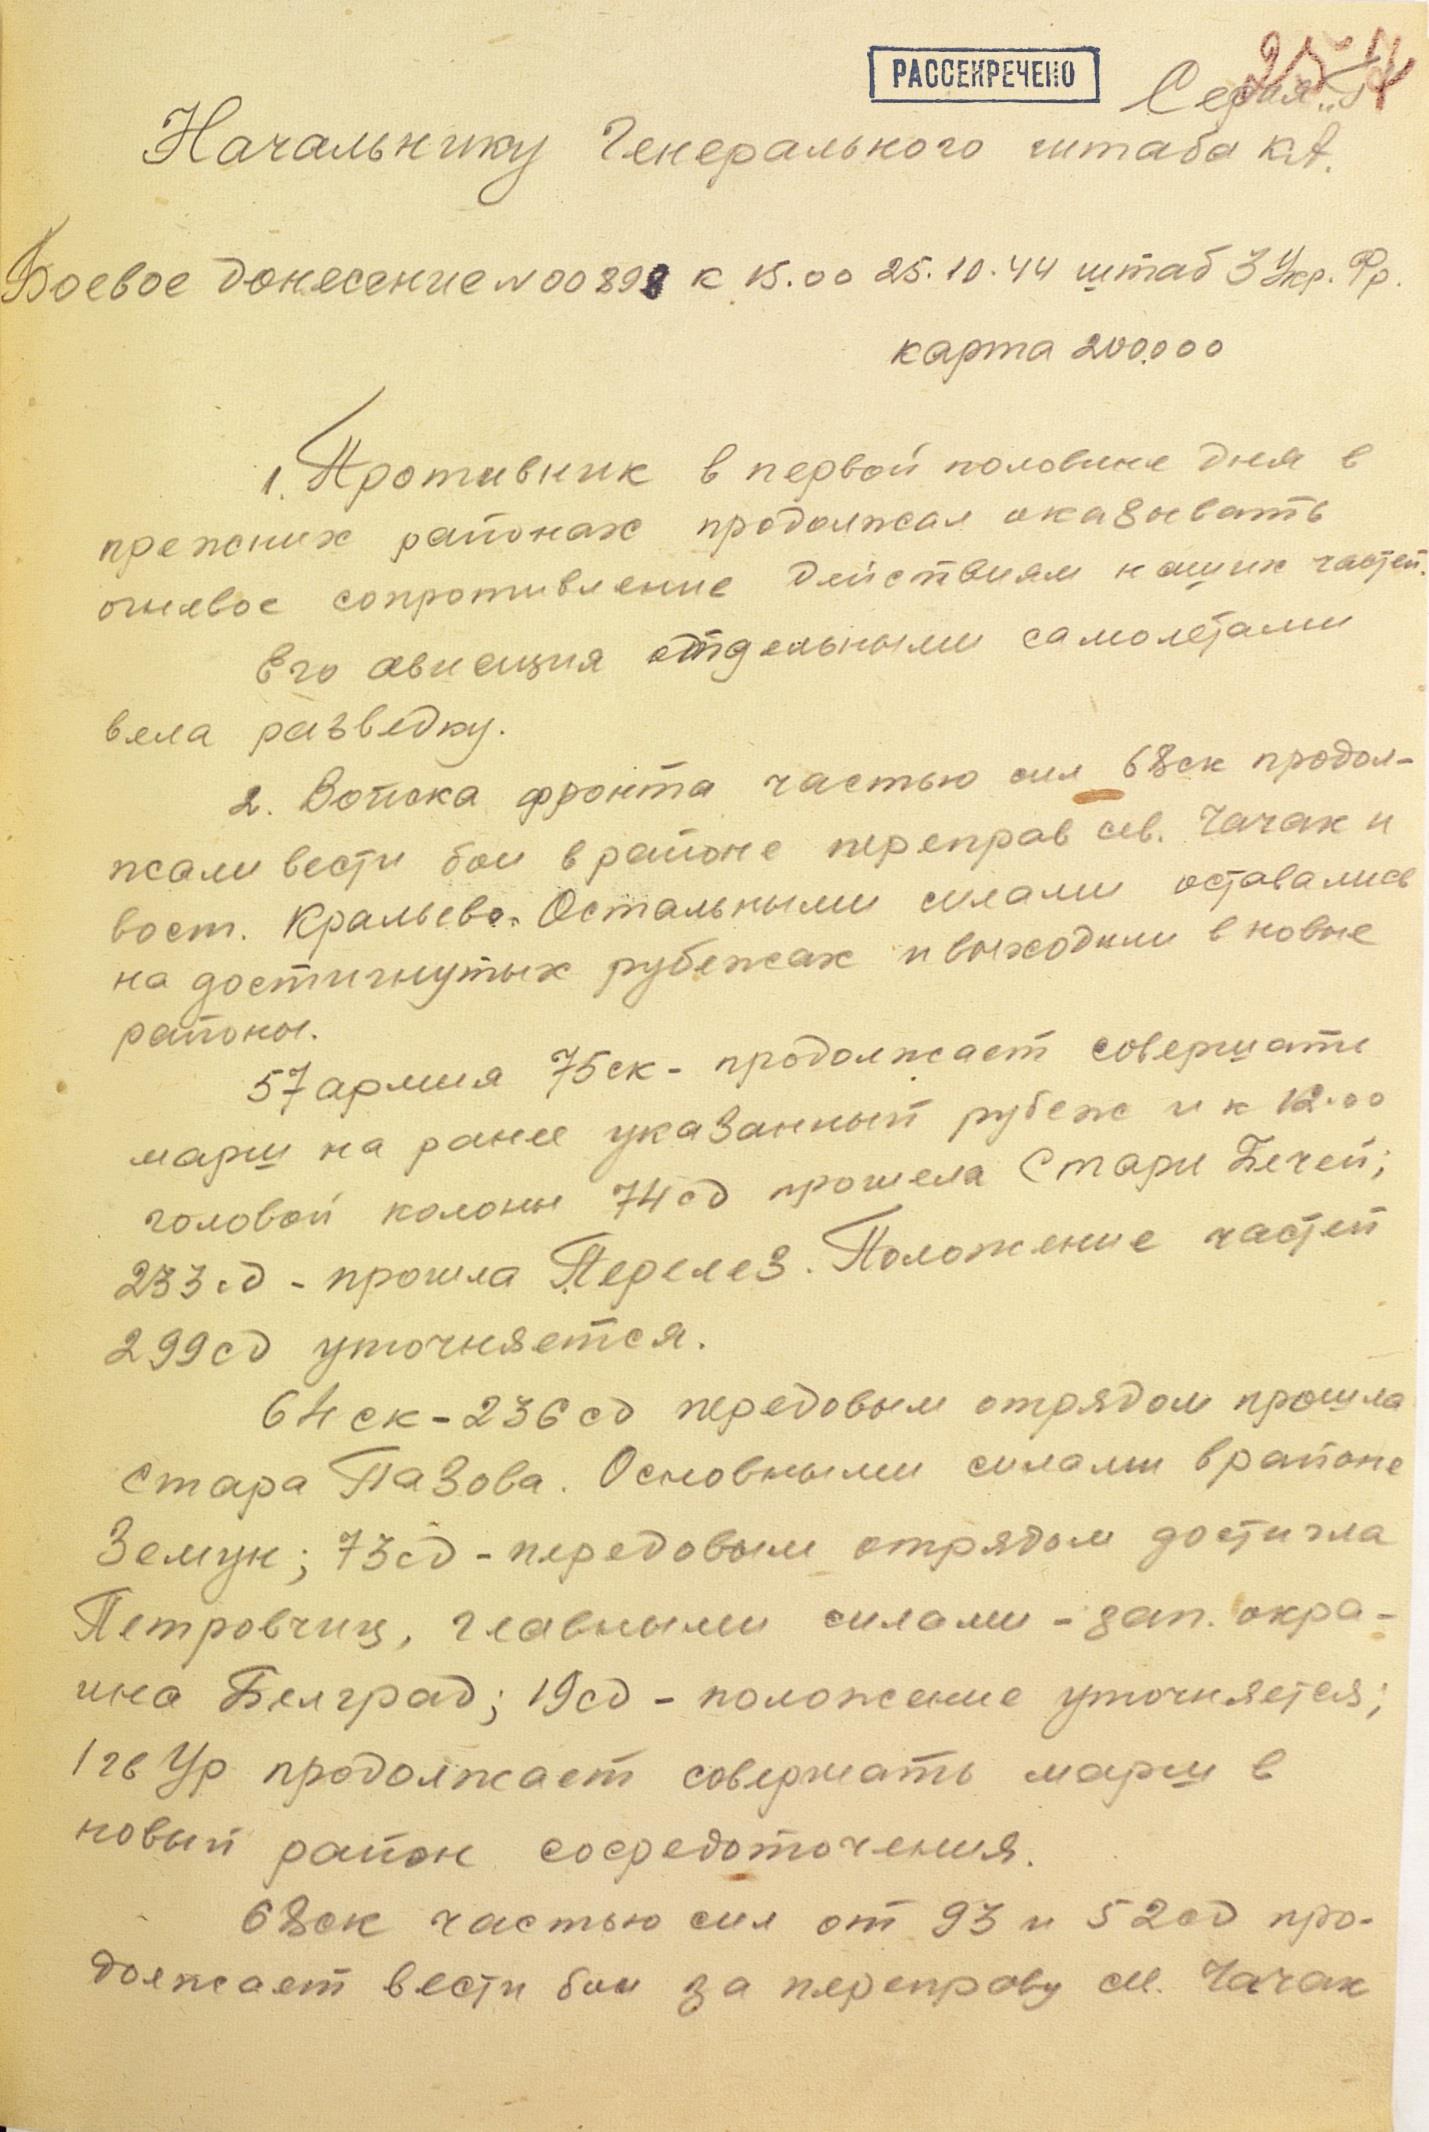 РАССЕКРЕЧЕНО
Серия "Г"
Начальнику Генерального штаба КА.
Боевое донесение №00898 к 15.00 25.10.44 штаб 3 Укр. Фр.
карта 200.000
1. Противник в первой половине дня в
прежних районах продолжал оказывать
огневое сопротивление действиям наших частей.
Его авиация отдельными самолетами
вела разведку.
2. Войска фронта частью сил 68ск продол-
жали вести бои в районе переправ сев. Чачак и
вост. Кральево. Остальными силами оставались
на достигнутых рубежах и выходили в новые
районы.
57 армия 75ск - продолжает совершать
марш на ранее указанный рубеж и к 12.00
головой колоны 74сд прошела Стари Бечей;
233сд - прошла Перелез. Положение частей
299сд уточняется.
64ск - 236сд передовым отрядом прошла
Стара Пазова. Основными силами в районе
Земун; 73сд - передовым отрядом достигла
Петровчиц, главными силами - зап. окра-
ина Белград; 19сд - положение уточняется;
1гв Ур продолжает совершать марш в
новый район сосредоточения.
68ск частью сил от 93 и 52сд про-
должает вести бои за переправу Чачак